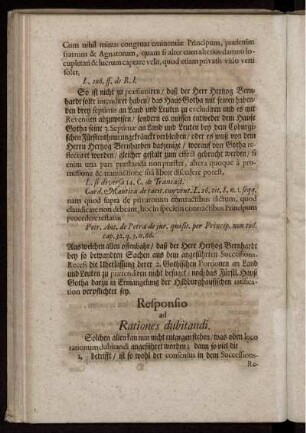 Cum nihil minus congruat eminentiæ Principum, præsertim
fratrum & Agnatorum, quam si alter cum alterius damno lo-
cupletari & lucrum captare velit, quod etiam privatis vitio verti
solet.
L. 206. ff. de R. I.
So ist nicht zu præsumiren, daß der Herr Hertzog Bern-
hardt solte intendiret haben, das Hauß Gotha mit seinen haben-
den drey septimis an Land und Leuten zu excludiren und es mit
Revenüen abzuweisen, sondern es müssen entweder dem Hause
Gotha seine 2. septimæ an Land und Leuten bey dem Coburgi-
schen Fürstenthum uneingeschränckt verbleiben, oder es muß von dem
Herrn Hertzog Bernhardten dasjenige, worauf von Gotha re-
nunciret worden, gleicher gestalt zum effect gebracht werden, si
enim una pars præstandi non præstet, altera quoque à pro-
missione & transactione sua libere discedere potest.
L. si diversa 14. C. de Transact.
Card. Mantica de tacit. & ambig. convent. L. 26. tit. 1. n. 1. seqq.
nam quod supra de privatorum contractibus dictum, quod
claudicare non debeant, hoc in specie in contractibus Principum
procedere testatur
Petr. Ant. de Petra de jur. quæsit. per Princip. non tol.
cap. 32. q. 3. n. 86.
Aus welchen allen offenbahr, daß der Herr Hertzog Bernhardt
bey so bewandten Sachen aus dem angeführten Successions-
Recess die Uberlassung derer 2. Gothischen Portionen an Land
und Leuten zu prætendiren nicht befugt, noch das Fürstl. Hauß
Gotha darzu in Ermangelung der Hildburghäusischen ratification
verpflichtet sey.
Responsio
ad
Rationes dubitandi.
Solchen allen kan nun nicht entgegen stehen, was oben loco
rationum dubitandi angeführet worden; dann so viel die
1. betrifft, ist so wohl der consensus in dem Successions-
Re-